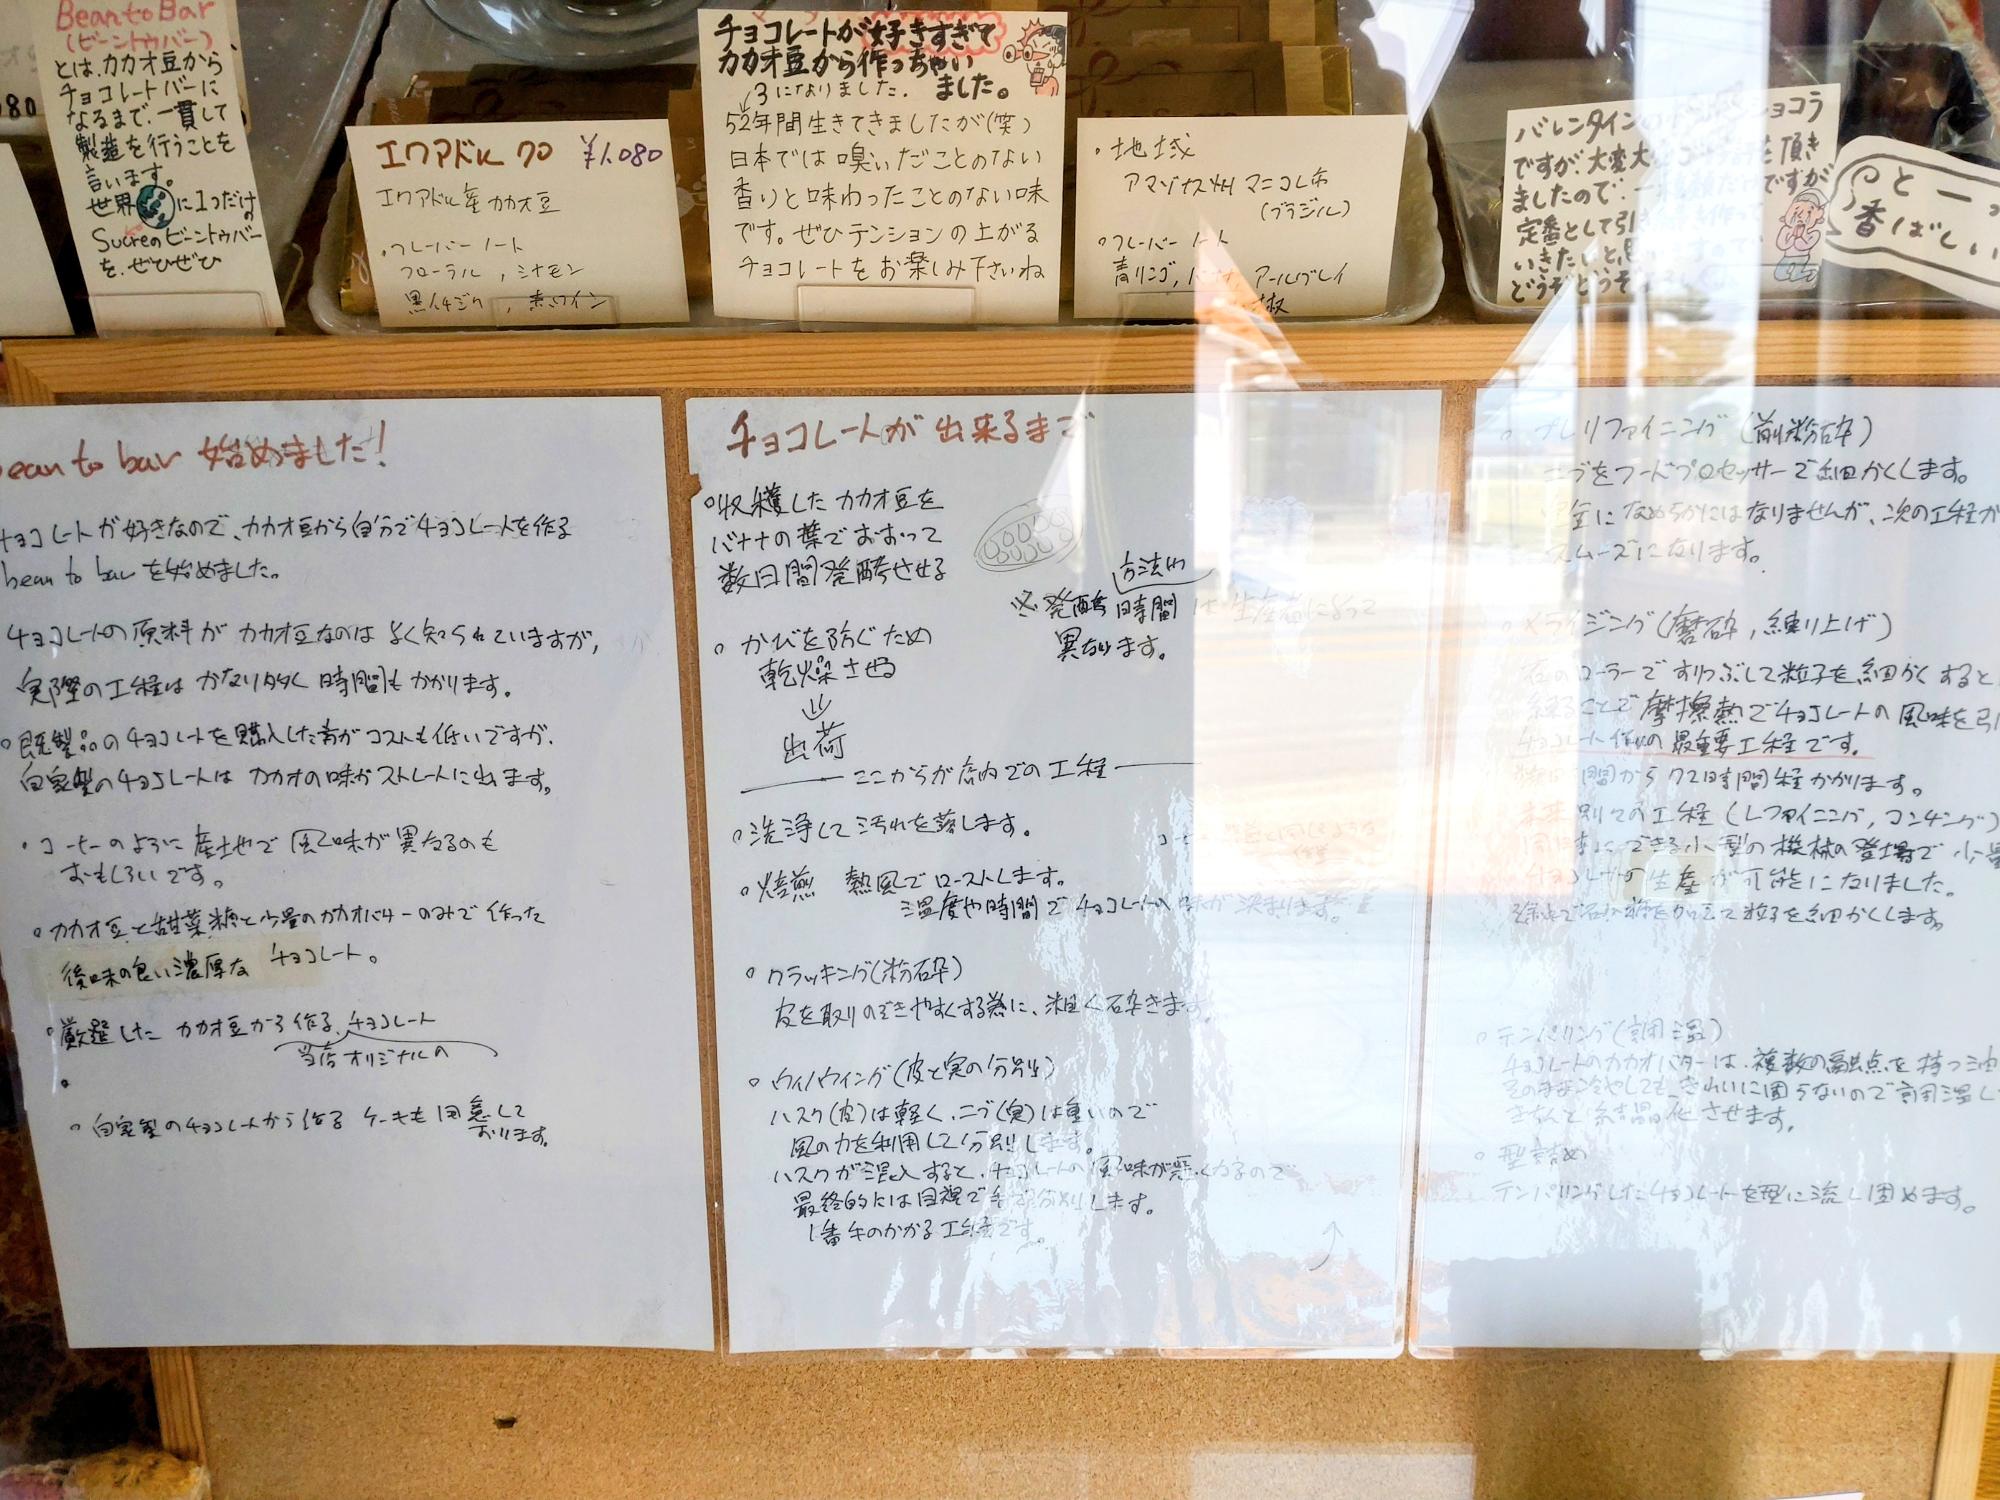 Bean to Bar
(ビーントゥバー)
とは、カカオ豆から
チョコレートバーに
なるまで、一貫して
製造を行うことを
言います。
世界に1つだけの
Sucreのビーントゥバー
を、ぜひぜひ
エクアドル 70 ¥1,080
エクアドル産カカオ豆
・フレーバーノート
フローラル、シナモン
黒イチジク、赤ワイン
チョコレートが好きすぎて
カカオ豆から作っちゃい
ました。
3になりました。
52年間生きてきましたが(笑)
日本では嗅いだことのない
香りと味わったことのない味
です。ぜひテンションの上がる
チョコレートをお楽しみ下さいね
・地域
アマゾナス州 マニコレ市
(ブラジル)
・フレーバーノート
青リンゴ、バナナ、アールグレイ
椒
バレンタインの ショコラ
ですが、大変大 頂き
ましたので、 ですが
定番として引き 作って
いきたいと思 す。で
どうぞどうぞ
香ばしい
bean to bar 始めました!
チョコレートが好きなので、カカオ豆から自分でチョコレートを作る
bean to bar を始めました。
チョコレートの原料がカカオ豆なのはよく知られていますが、
実際の工程はかなり多く時間もかかります。
・既製品のチョコレートを購入した方がコストも低いですが、
自家製のチョコレートはカカオの味がストレートに出ます。
・コーヒーのように産地で風味が異なるのも
おもしろいです。
・カカオ豆と甜菜糖と少量のカカオバターのみで作った
後味の良い濃厚な チョコレート。
・厳選したカカオ豆から作る、チョコレート
当店オリジナルの
・
・自家製のチョコレートから作るケーキも用意して
おります。
チョコレートが出来るまで
・収穫したカカオ豆を
バナナの葉でおおって
数日間発酵させる
方法や
※発酵時間は生産者によって
異なります。
・かびを防ぐため
乾燥させる
↓
出荷
ここからが店内での工程
・洗浄して汚れを落します。
・焙煎 熱風でローストします。
温度や時間でチョコレートの味が決まります。
・クラッキング(粉砕)
皮を取りのぞきやすくする為に、粗く砕きます
・ウィノウイング(皮と実の分別)
ハスク(皮)は軽く、ニブ(実)は重いので
風の力を利用して分別します。
ハスクが混入すると、チョコレートの風味が悪くなるので
最終的には目視で手で分別します。
1番手のかかる工程です。
・プレリファイニング(前粉砕)
ニブをフードプロセッサーで細かくします。
完全になめらかにはなりませんが、次の工程が
スムーズになります。
・メランジング(磨砕、練り上げ)
石のローラーですりつぶして粒子を細かくすると
練ることで摩擦熱でチョコレートの風味を引
チョコレート作りの最重要工程です。
時間から72時間程かかります。
本来別々の工程(レファイニング、コンチング)
同時にできる小型の機械の登場で少量
チョコレートの生産が可能になりました。
粒子を細かくします。
・テンパリング(調温)
チョコレートのカカオバターは、複数の融点を持つ油
そのまま冷やしても、きれいに固らないので調温し
きちんと結晶化させます。
・型詰め
テンパリングしたチョコレートを型に流し固めます。